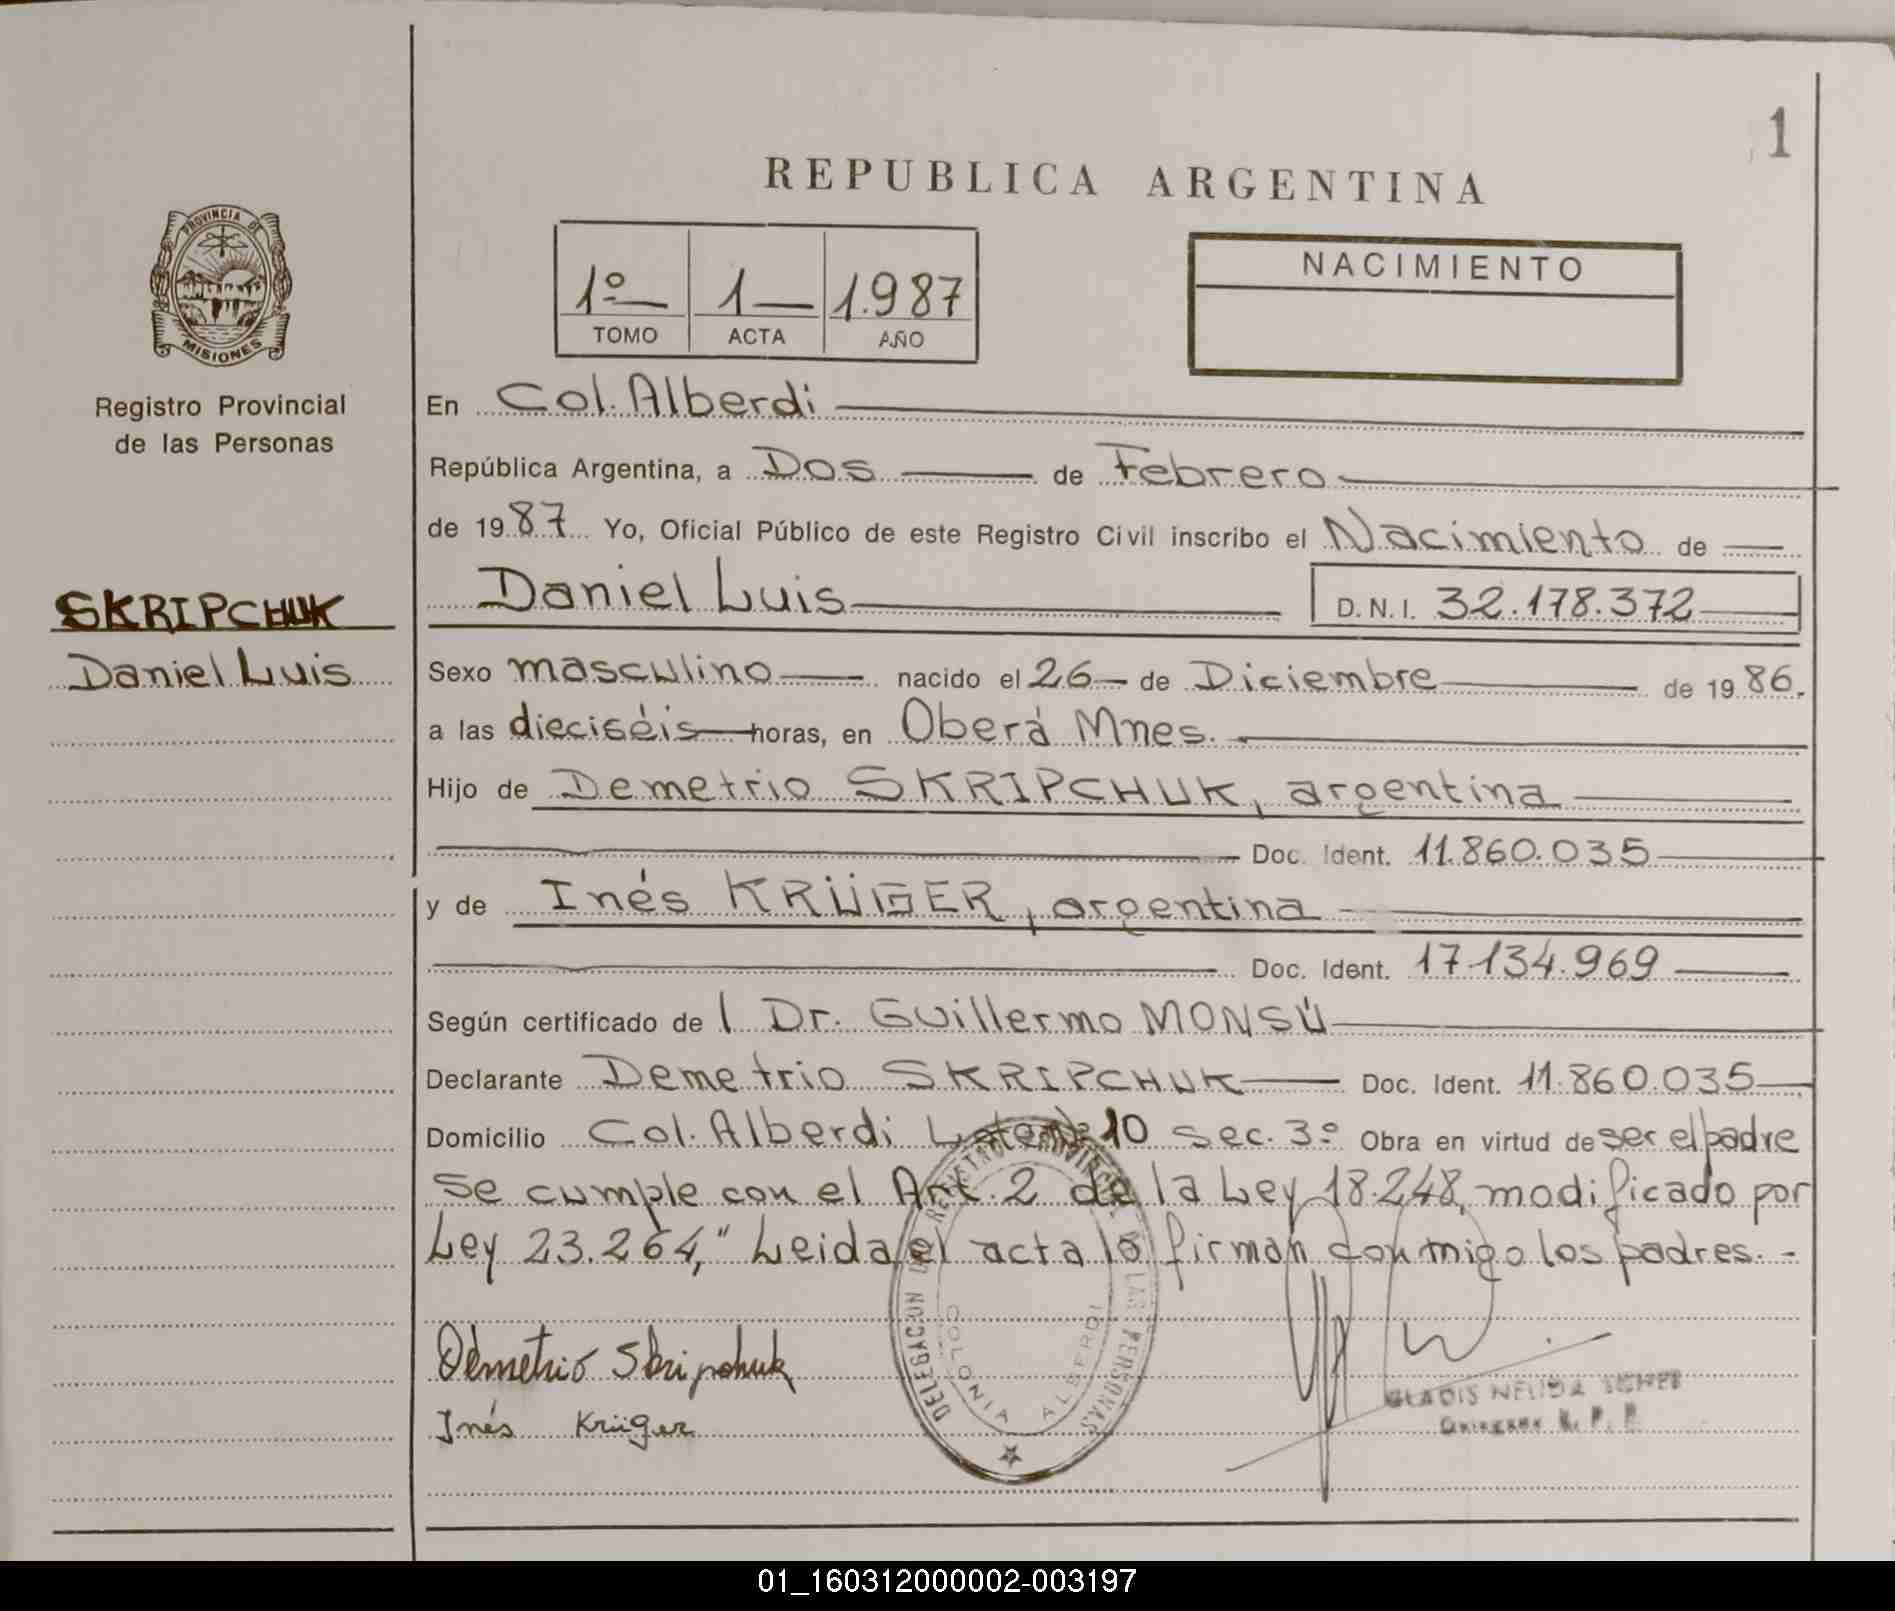 1
REPUBLICA ARGENTINA
PROVINCIA DE
MISIONES
Registro Provincial
de las Personas
1º 1 1.987
TOMO ACTA AÑO
NACIMIENTO
En Col. Alberdi
República Argentina, a Dos de Febrero
de 1987 Yo, Oficial Público de este Registro Civil inscribo el Nacimiento de
Daniel Luis D.N.I. 32.178.372
SKRIPCHUK
Daniel Luis
Sexo masculino nacido el 26 de Diciembre de 1986.
a las dieciséis horas, en Oberá Mnes.
Hijo de Demetrio SKRIPCHUK, argentina
Doc. Ident. 11.860.035
y de Inés KRÜGER, argentina
Doc. Ident. 17.134.969
Según certificado de l Dr. Guillermo MONSÚ
Declarante Demetrio SKRIPCHUK Doc. Ident. 11.860.035
Domicilio Col. Alberdi Lote Nº 10 sec. 3º Obra en virtud de ser el padre
Se cumple con el Art. 2 de la Ley 18.248, modificado por
Ley 23.264," Leida el acta la firman conmigo los padres.-
Demetrio Skripchuk
Inés Krüger
DELEGACION DEL REGISTRO PROVINCIAL DE LAS PERSONAS
COLONIA ALBERDI
GLADIS NELIDA
R. P. P.
01_160312000002-003197